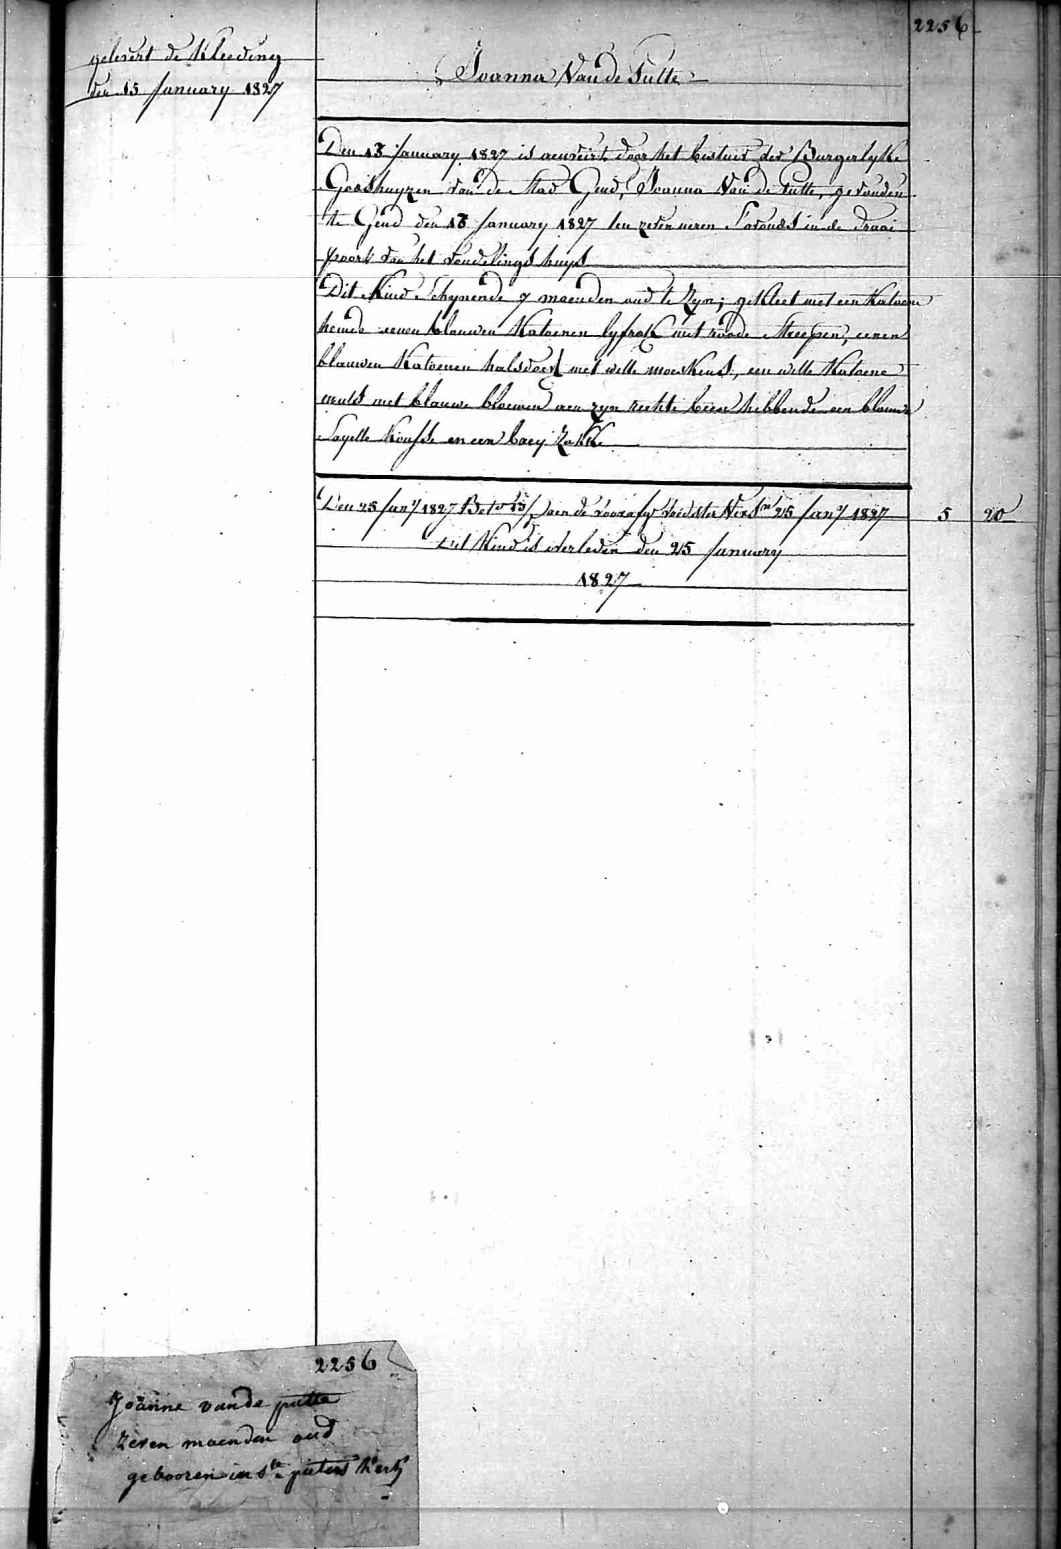 2256
gelevert de Kleeding
den 15 January 1827
Joanna Van de Putte
Den 13 January 1827 is aenveirt door het bestuir der Burgerlyke
Godshuyzen van de Stad Gend, Joanna Van de Putte, gevonden
te Gend den 13 January 1827 ten zeven ueren S'avonds in de draai
poort van het vondelings huys
Dit Kind Schynende 7 maenden oud te Zyn; gekleet met een Katoene
hemde eenen blauwen Katoenen lyfrok met roode streepen, eenen
blauwen Katoenen halsdoek met witte moeskens, een witte Katoene
muts met blauwe bloemen aen zyn rechte been hebbende een blauwe
Sayette Kousse en een baey Zokke
Den 25 Jany 1827 Bet aen de voedster 25 Jany 1827 5 20
Dit Kind is overleden den 25 January
1827
2256
Joanne vande putte
zeven maenden oud
gebooren in Ste pieters Kerk